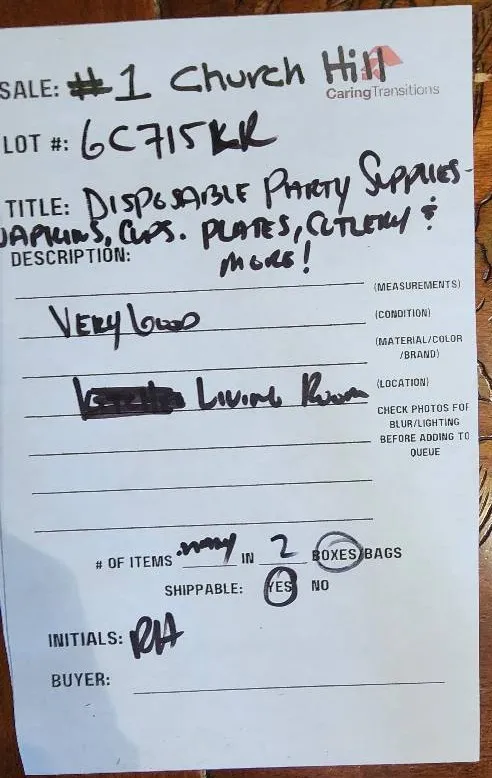 SALE: #1 Church Hill
CaringTransitions
LOT #: 6C715KR
TITLE: DISPOSABLE PARTY SUPPLIES-
NAPKINS, CUPS. PLATES, CUTLERY &
MORE!
DESCRIPTION:
(MEASUREMENTS)
VERY GOOD (CONDITION)
(MATERIAL/COLOR
/BRAND)
LIVING ROOM (LOCATION)
CHECK PHOTOS FOR
BLUR/LIGHTING
BEFORE ADDING TO
QUEUE
# OF ITEMS many IN 2 BOXES/BAGS
SHIPPABLE: YES NO
INITIALS: RH
BUYER: